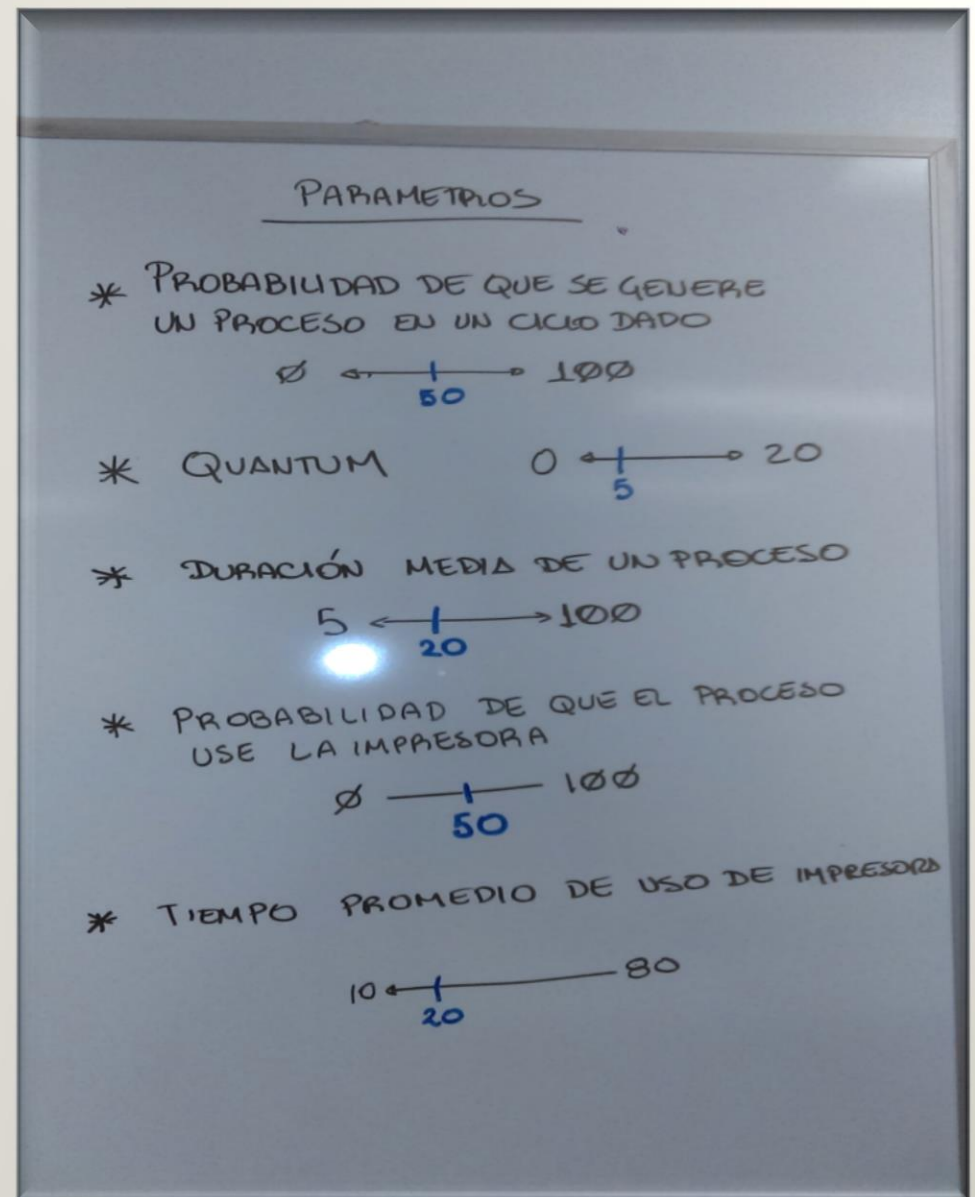 PARAMETROS
* PROBABILIDAD DE QUE SE GENERE
UN PROCESO EN UN CICLO DADO
Ø 100
50
* QUANTUM 0 20
5
* DURACIÓN MEDIA DE UN PROCESO
5 100
20
* PROBABILIDAD DE QUE EL PROCESO
USE LA IMPRESORA
Ø 100
50
* TIEMPO PROMEDIO DE USO DE IMPRESORA
10 80
20